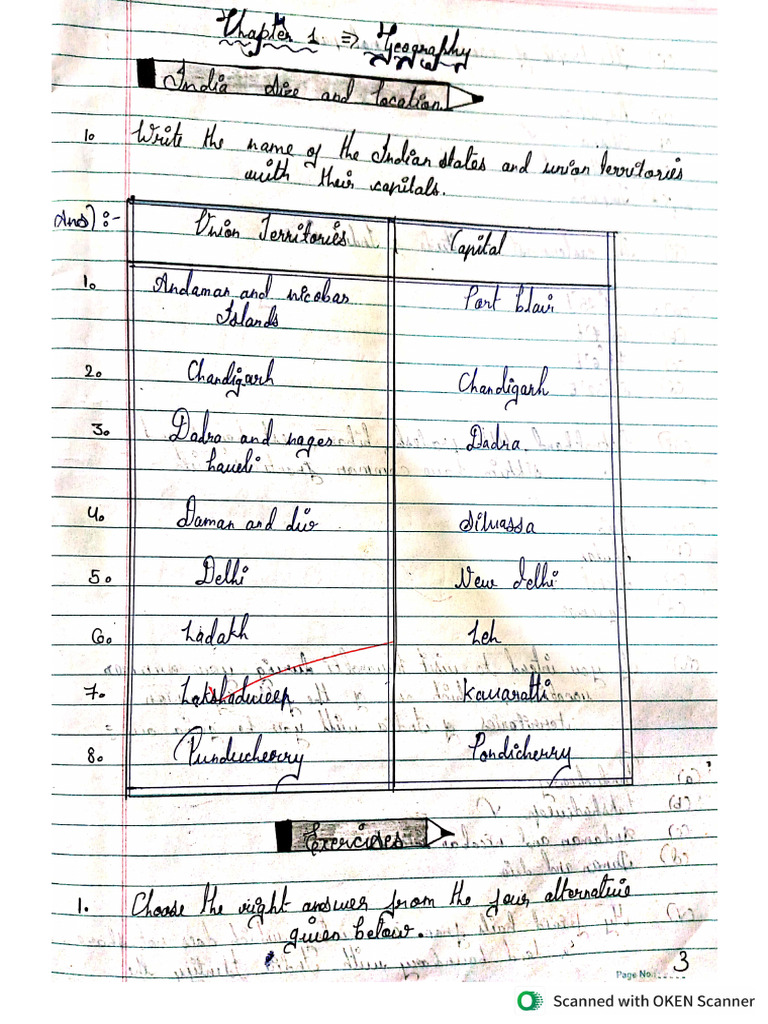 Chapter 1 ⇒ Geography
India size and location
1. Write the name of the Indian states and union territories
with their capitals.
Ans) :- Union Territories Capital
1. Andaman and nicobar Port blair
Islands
2. Chandigarh Chandigarh
3. Dadra and nages Dadra.
haveli
4. Daman and diu Silvassa
5. Delhi New delhi
6. Ladakh Leh
7. Lakshadweep Kavaratti
8. Punducherry Pondicherry
Exercises
1. Choose the right answer from the four alternative
given below.
Page No. 3
Scanned with OKEN Scanner